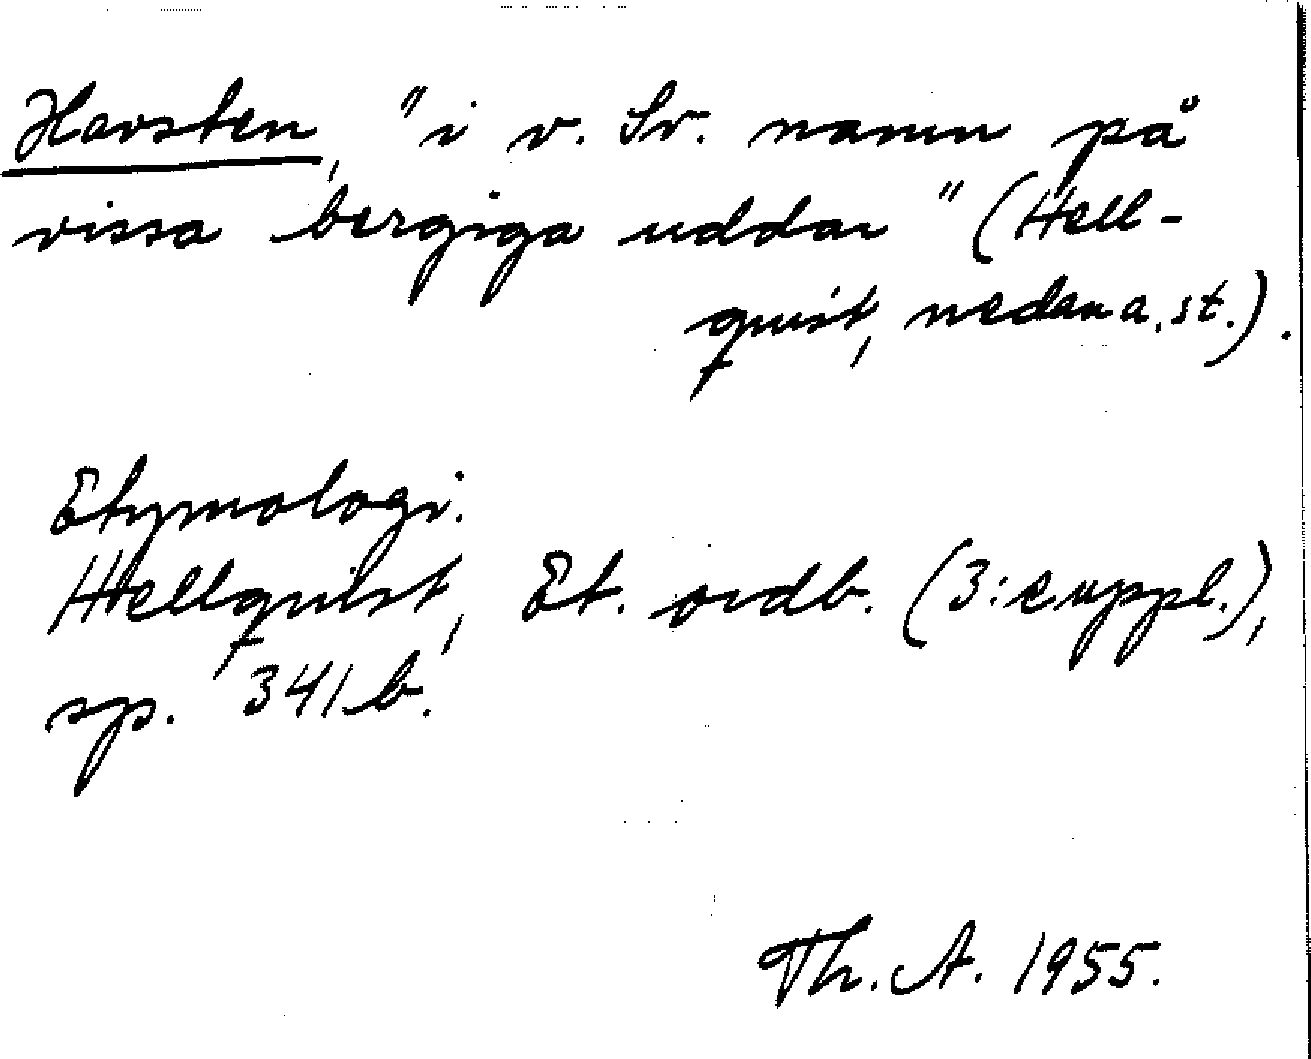 Havsten, "i v. Sv. namn på
vissa bergiga uddar" (Hell-
quist, nedan a. st.).
Etymologi.
Hellquist, Et. ordb. (3:e uppl.),
sp. 341 b.
Th. A. 1955.